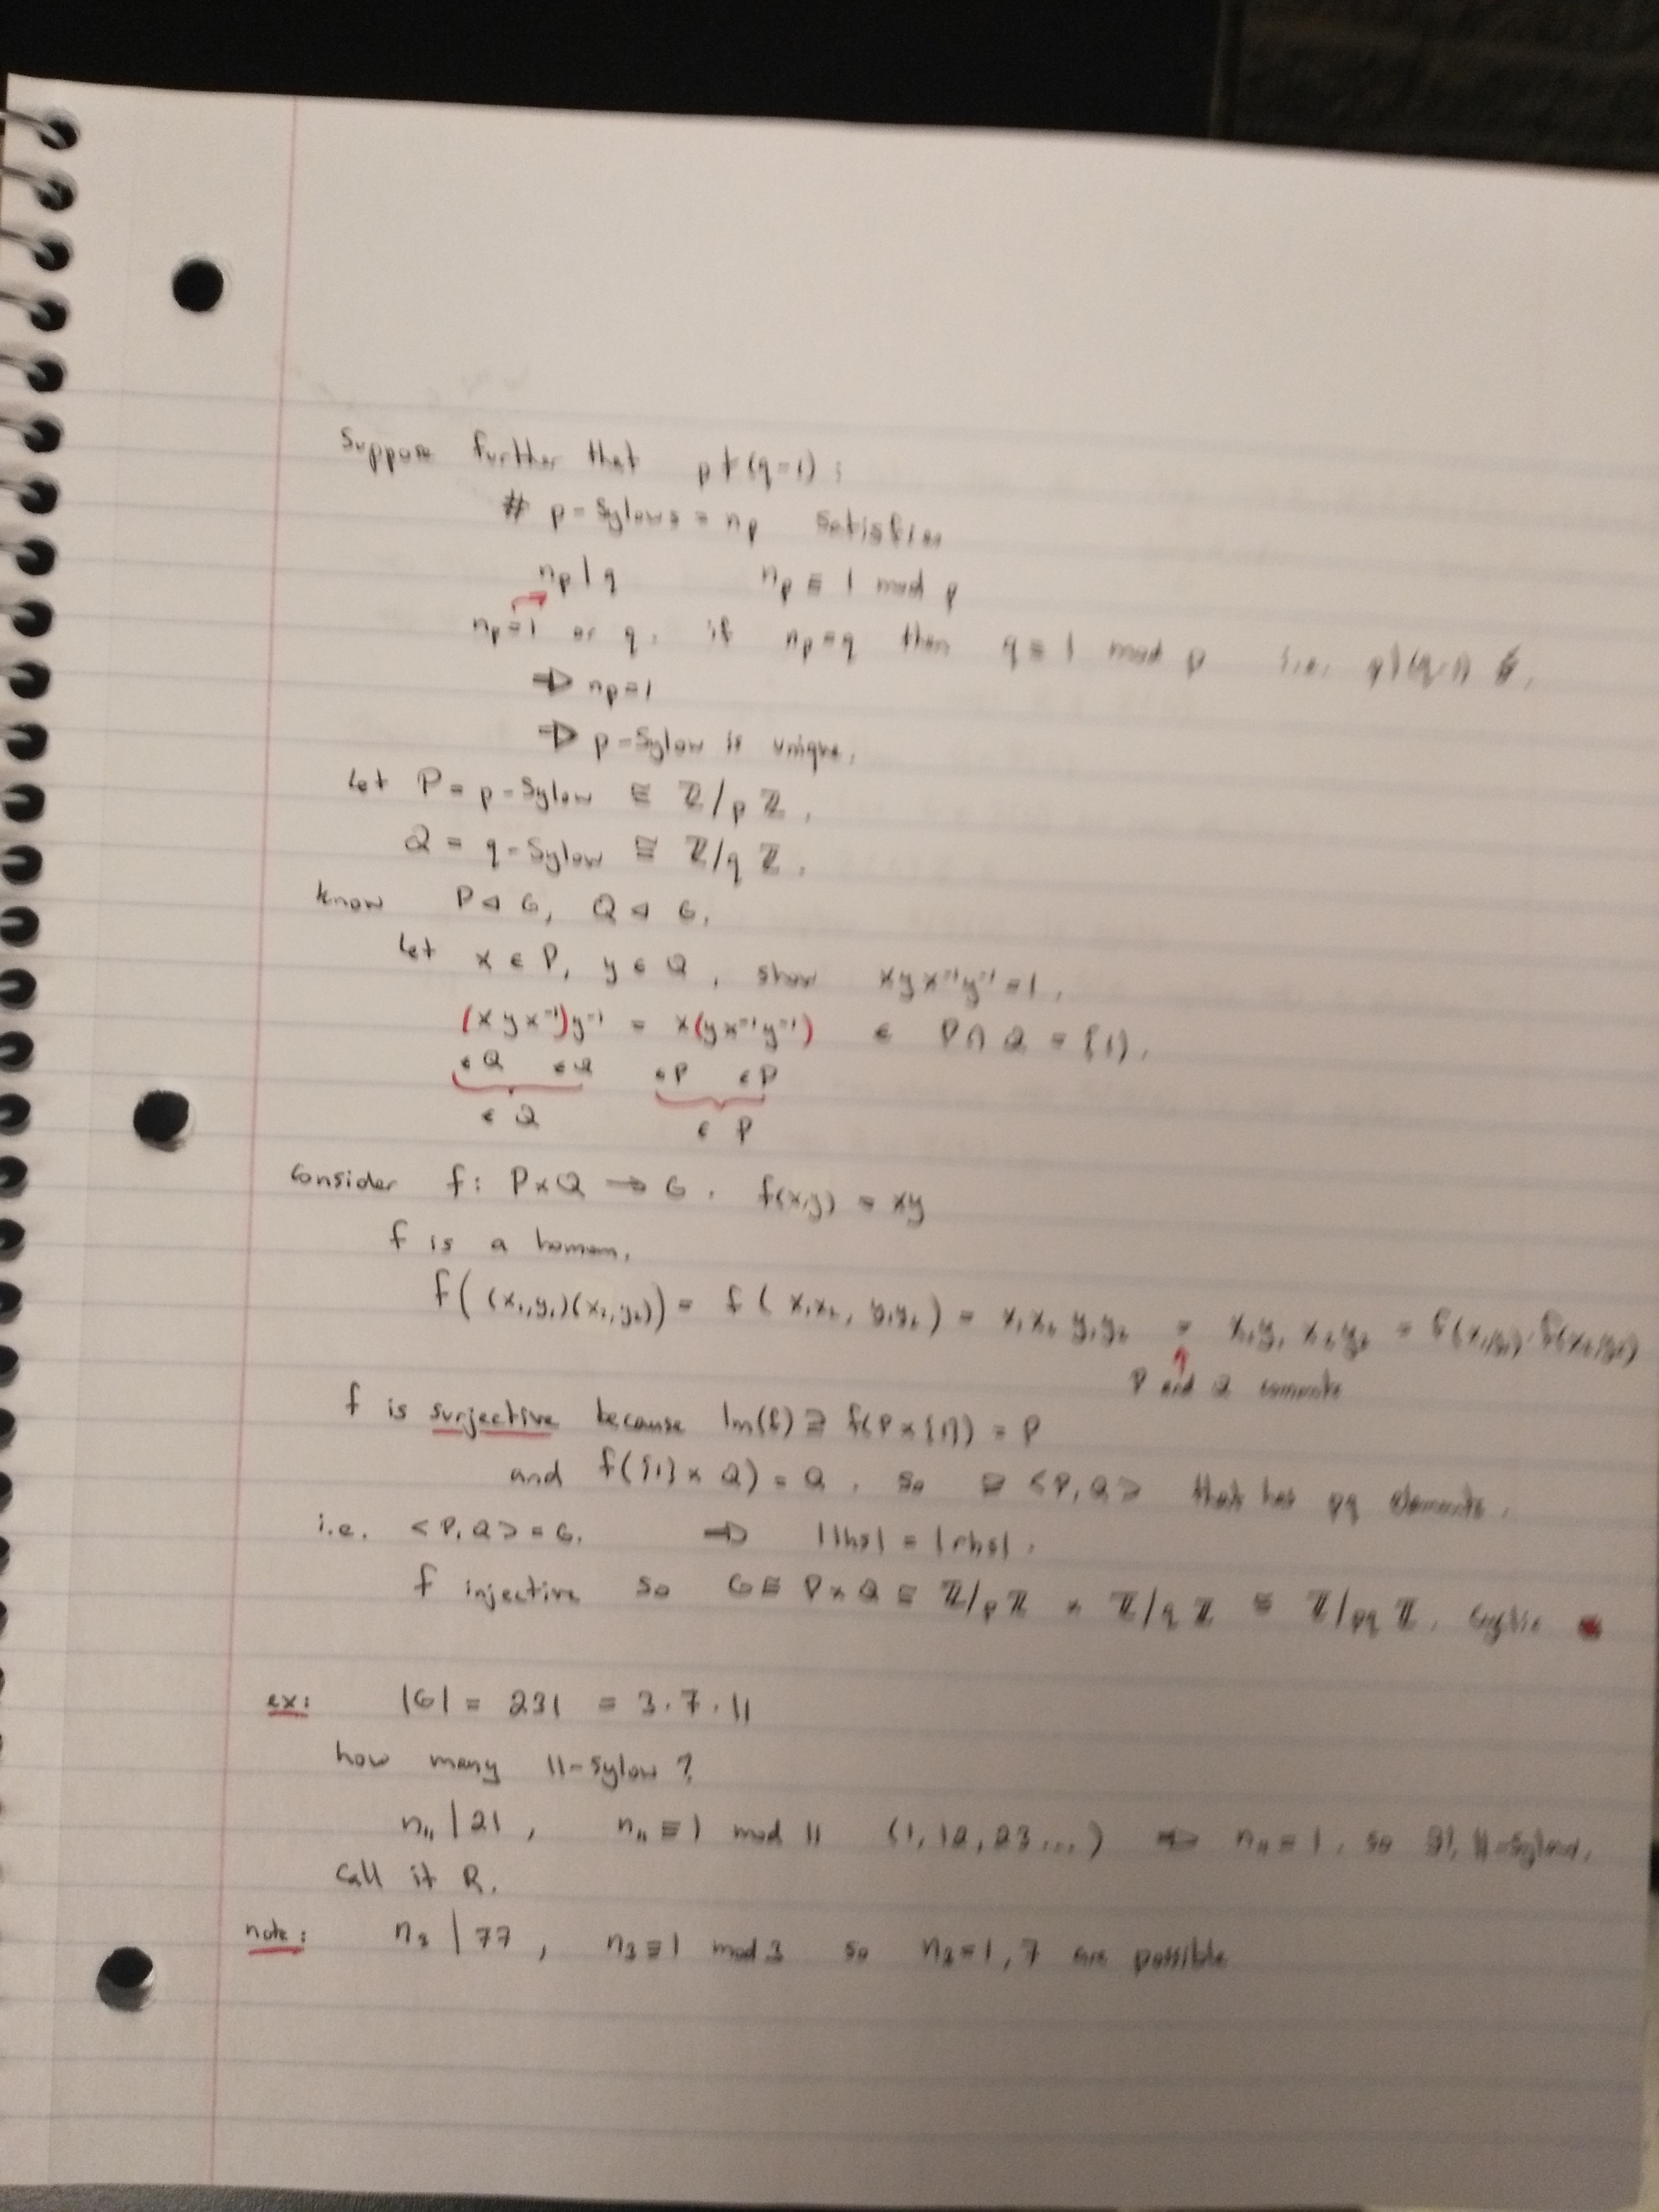 Suppose further that p ∤ (q-1) :
# p-Sylows = np satisfies
np | q np ≡ 1 mod p
np=1 or q. if np=q then q ≡ 1 mod p i.e.
⇒ np=1
⇒ p-Sylow is unique.
Let P = p-Sylow ≅ ℤ/pℤ.
Q = q-Sylow ≅ ℤ/qℤ.
know P ◁ G, Q ◁ G.
Let x ∈ P, y ∈ Q, show xyx⁻¹y⁻¹ = 1.
(xyx⁻¹)y⁻¹ = x(yx⁻¹y⁻¹) ∈ P ∩ Q = {1}.
∈ Q ∈ Q ∈ P ∈ P
∈ Q ∈ P
Consider f: P×Q → G. f(x,y) = xy
f is a homom.
f((x₁,y₁)(x₂,y₂)) = f(x₁x₂, y₁y₂) = x₁x₂y₁y₂ = x₁y₁x₂y₂ = f(x₁,y₁)·f(x₂,y₂)
P and Q commute
f is surjective because Im(f) ⊇ f(P×{1}) = P
and f({1}×Q) = Q, so ⊇ <P,Q> that has pq elements.
i.e. <P,Q> = G. ⇒ |lhs| = |rhs|.
f injective so G ≅ P×Q ≅ ℤ/pℤ × ℤ/qℤ ≅ ℤ/pqℤ. Cyclic
ex: |G| = 231 = 3·7·11
how many 11-Sylow?
n₁₁ | 21, n₁₁ ≡ 1 mod 11 (1, 12, 23...) ⇒ n₁₁ = 1, so ∃! 11-Sylow.
Call it R.
note: n₃ | 77, n₃ ≡ 1 mod 3 so n₃ = 1, 7 are possible